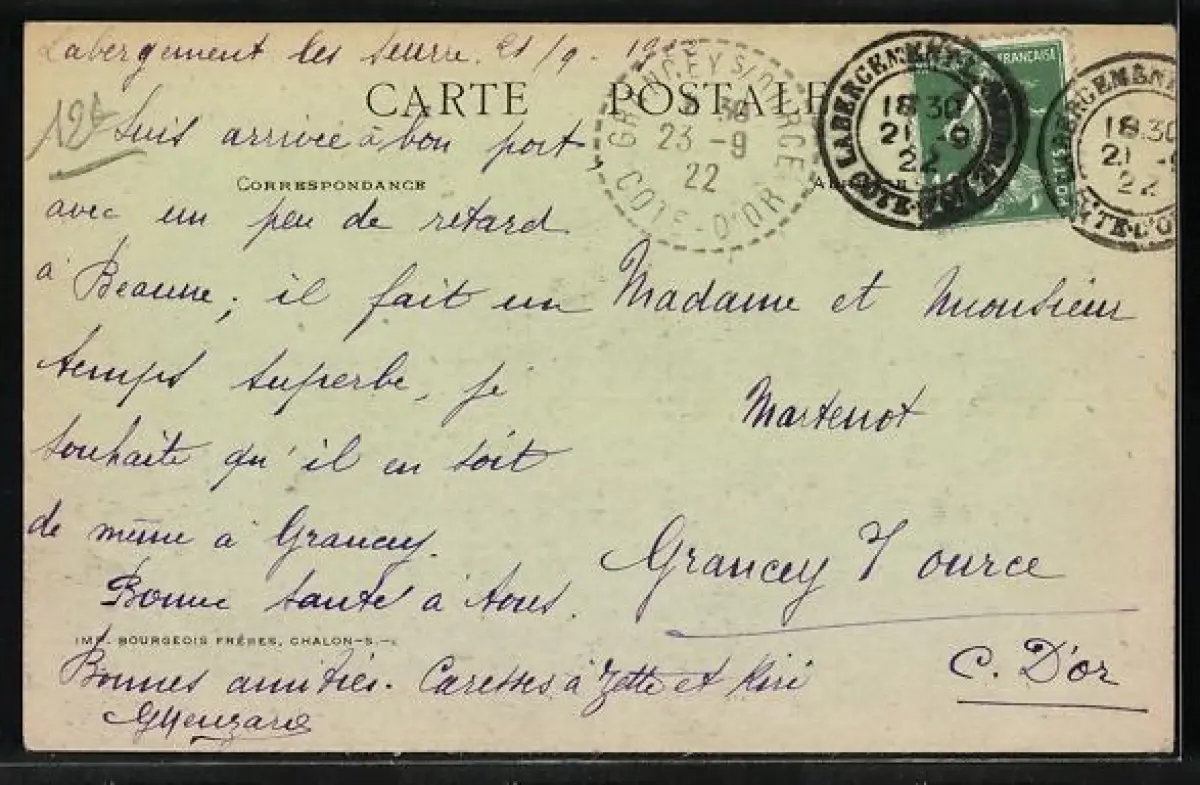 Labergement les Seurre. 21/9.
CARTE POSTALE
12
Suis arrivée à bon port
CORRESPONDANCE
avec un peu de retard
à Beaune, il fait un
temps superbe, je
souhaite qu'il en soit
de même à Grancey.
Bonne santé à tous.
IMP. BOURGEOIS FRÈRES, CHALON-S.-
Bonnes amitiés. Caresses à Zette et Kiri
GRANCEY S/OURCE
30
23-9
22
COTE-D'OR
FRANÇAISE
LABERGEMENT
18 30
21-9
22
COTE-D'OR
LABERGEMENT
18 30
21-9
22
COTE-D'O
Madame et Monsieur
Martenot
Grancey s/ ource
C. D'or